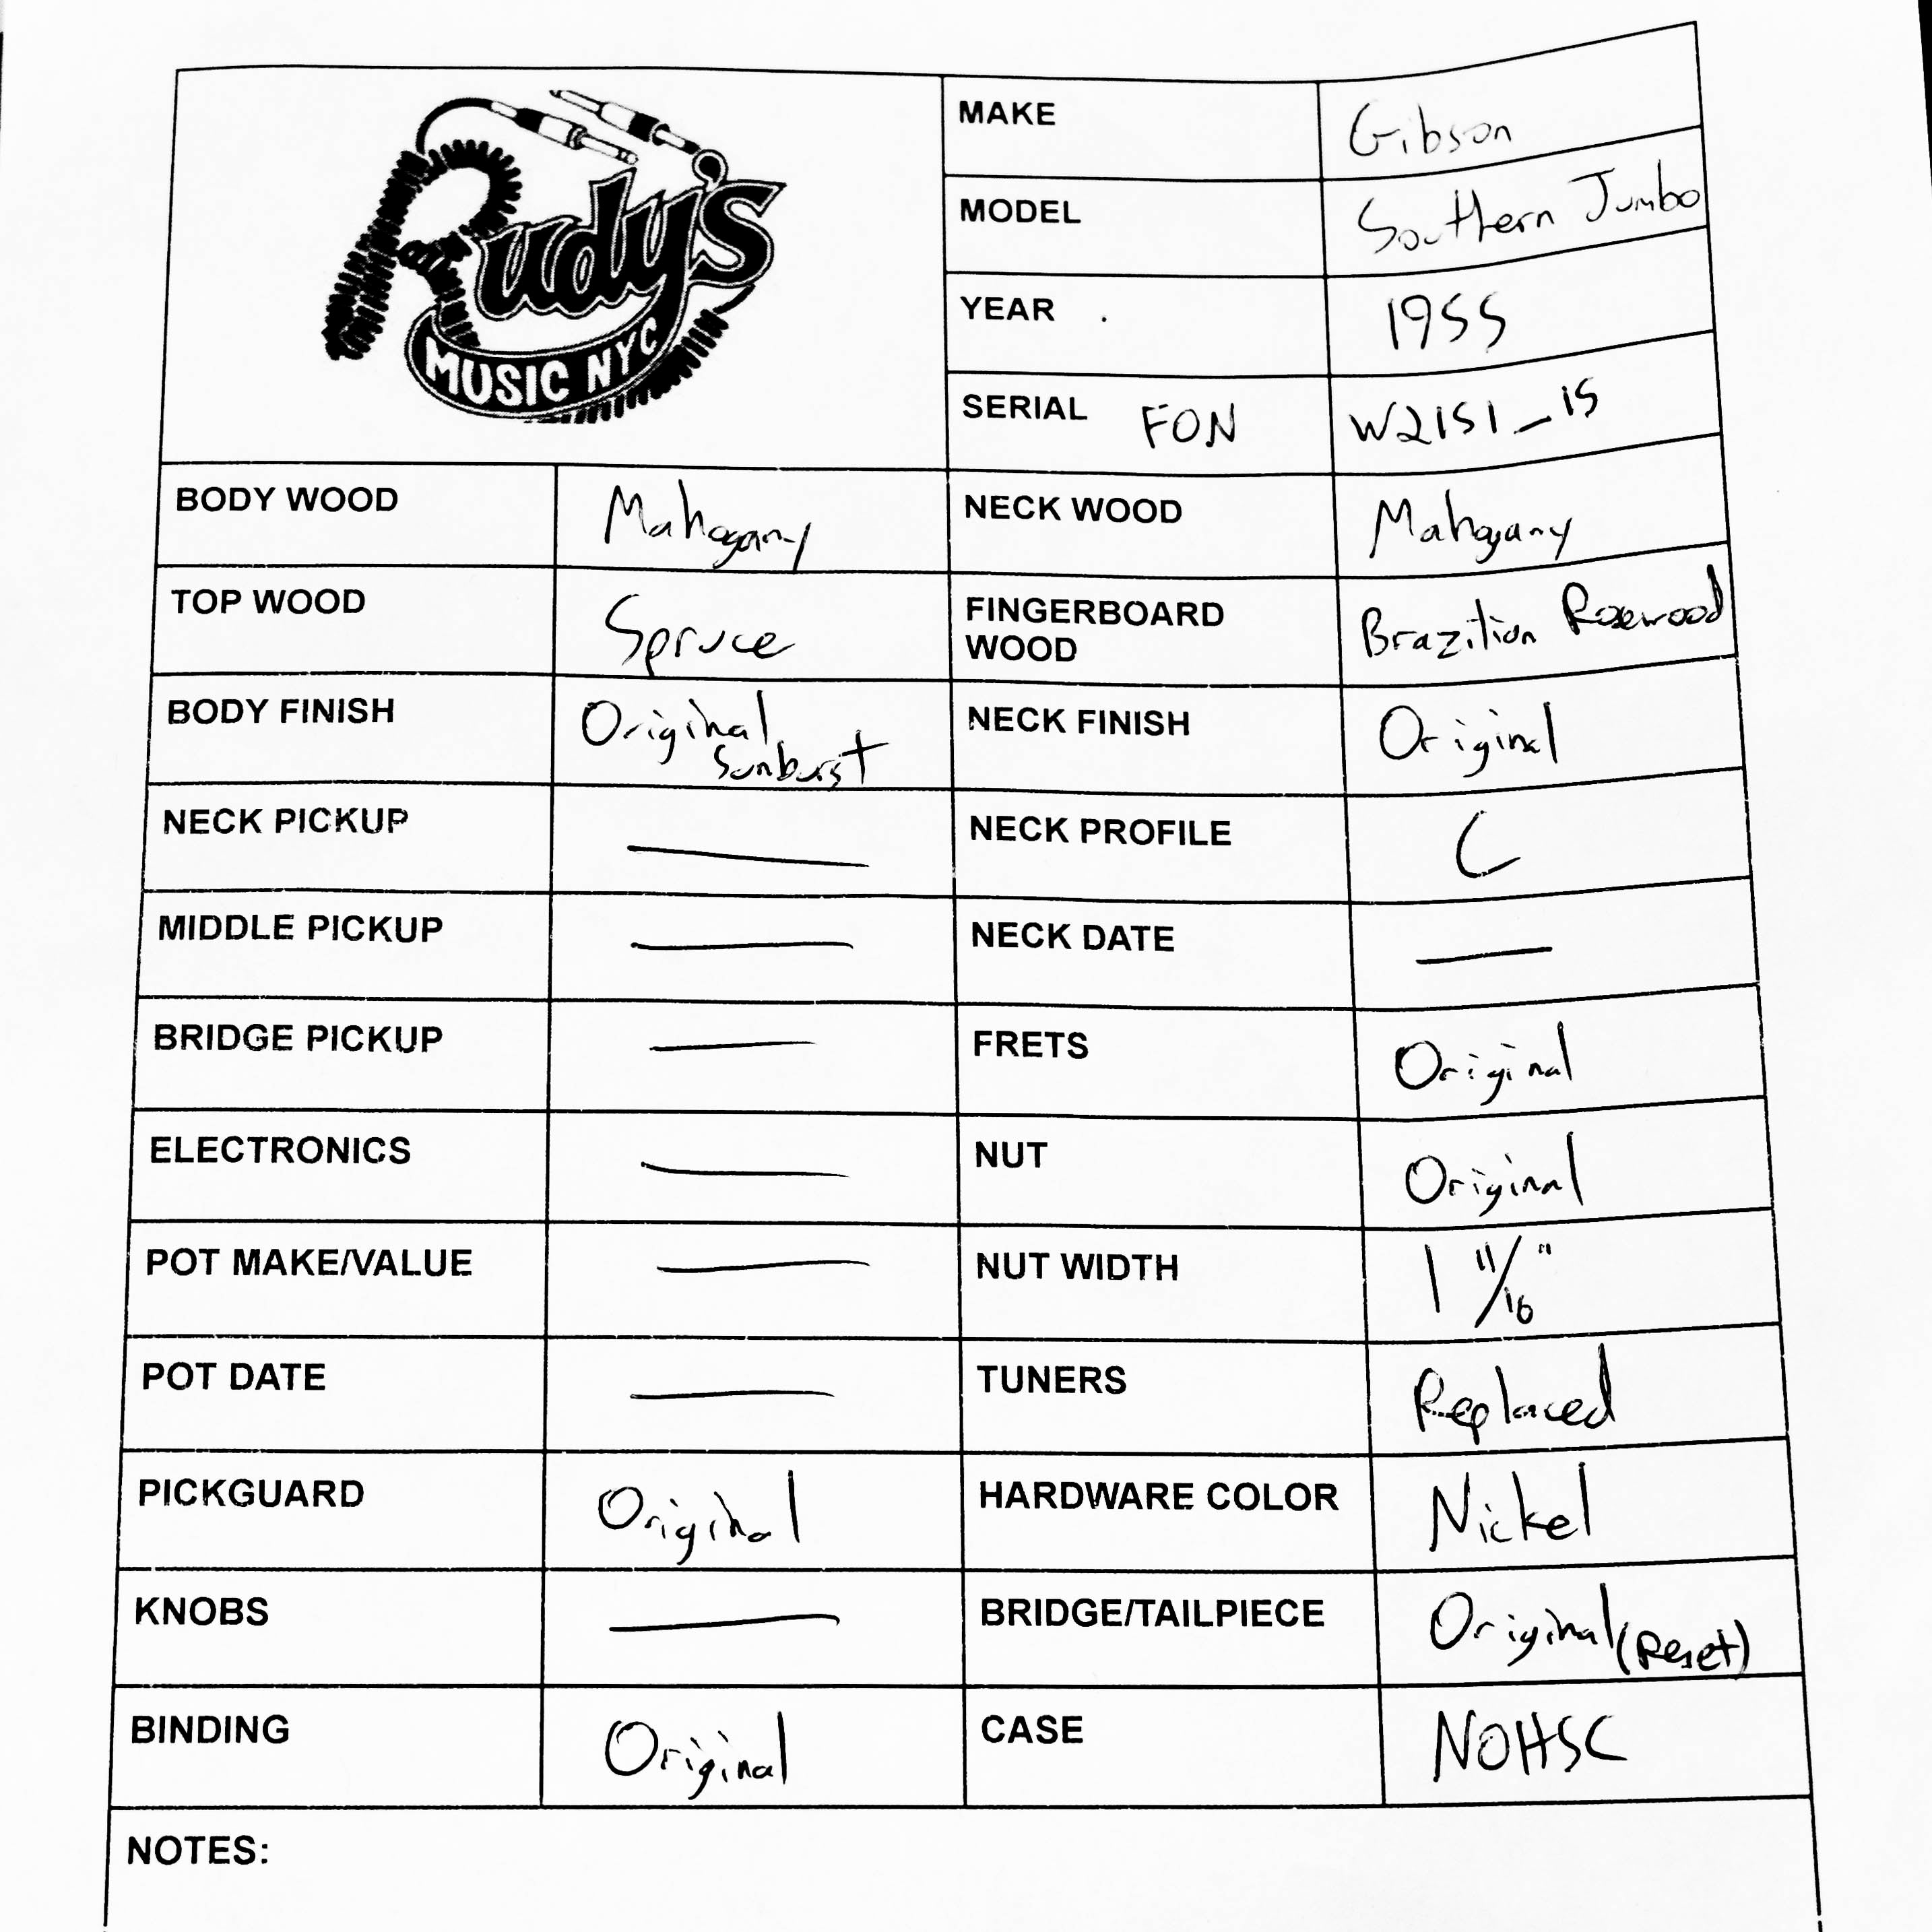 Rudy's
MUSIC NYC
MAKE Gibson
MODEL Southern Jumbo
YEAR 1955
SERIAL FON W2151-15
BODY WOOD Mahogany NECK WOOD Mahogany
TOP WOOD Spruce FINGERBOARD WOOD Brazilian Rosewood
BODY FINISH Original Sunburst NECK FINISH Original
NECK PICKUP — NECK PROFILE C
MIDDLE PICKUP — NECK DATE —
BRIDGE PICKUP — FRETS Original
ELECTRONICS — NUT Original
POT MAKE/VALUE — NUT WIDTH 1 11/16"
POT DATE — TUNERS Replaced
PICKGUARD Original HARDWARE COLOR Nickel
KNOBS — BRIDGE/TAILPIECE Original (Reset)
BINDING Original CASE NOHSC
NOTES: